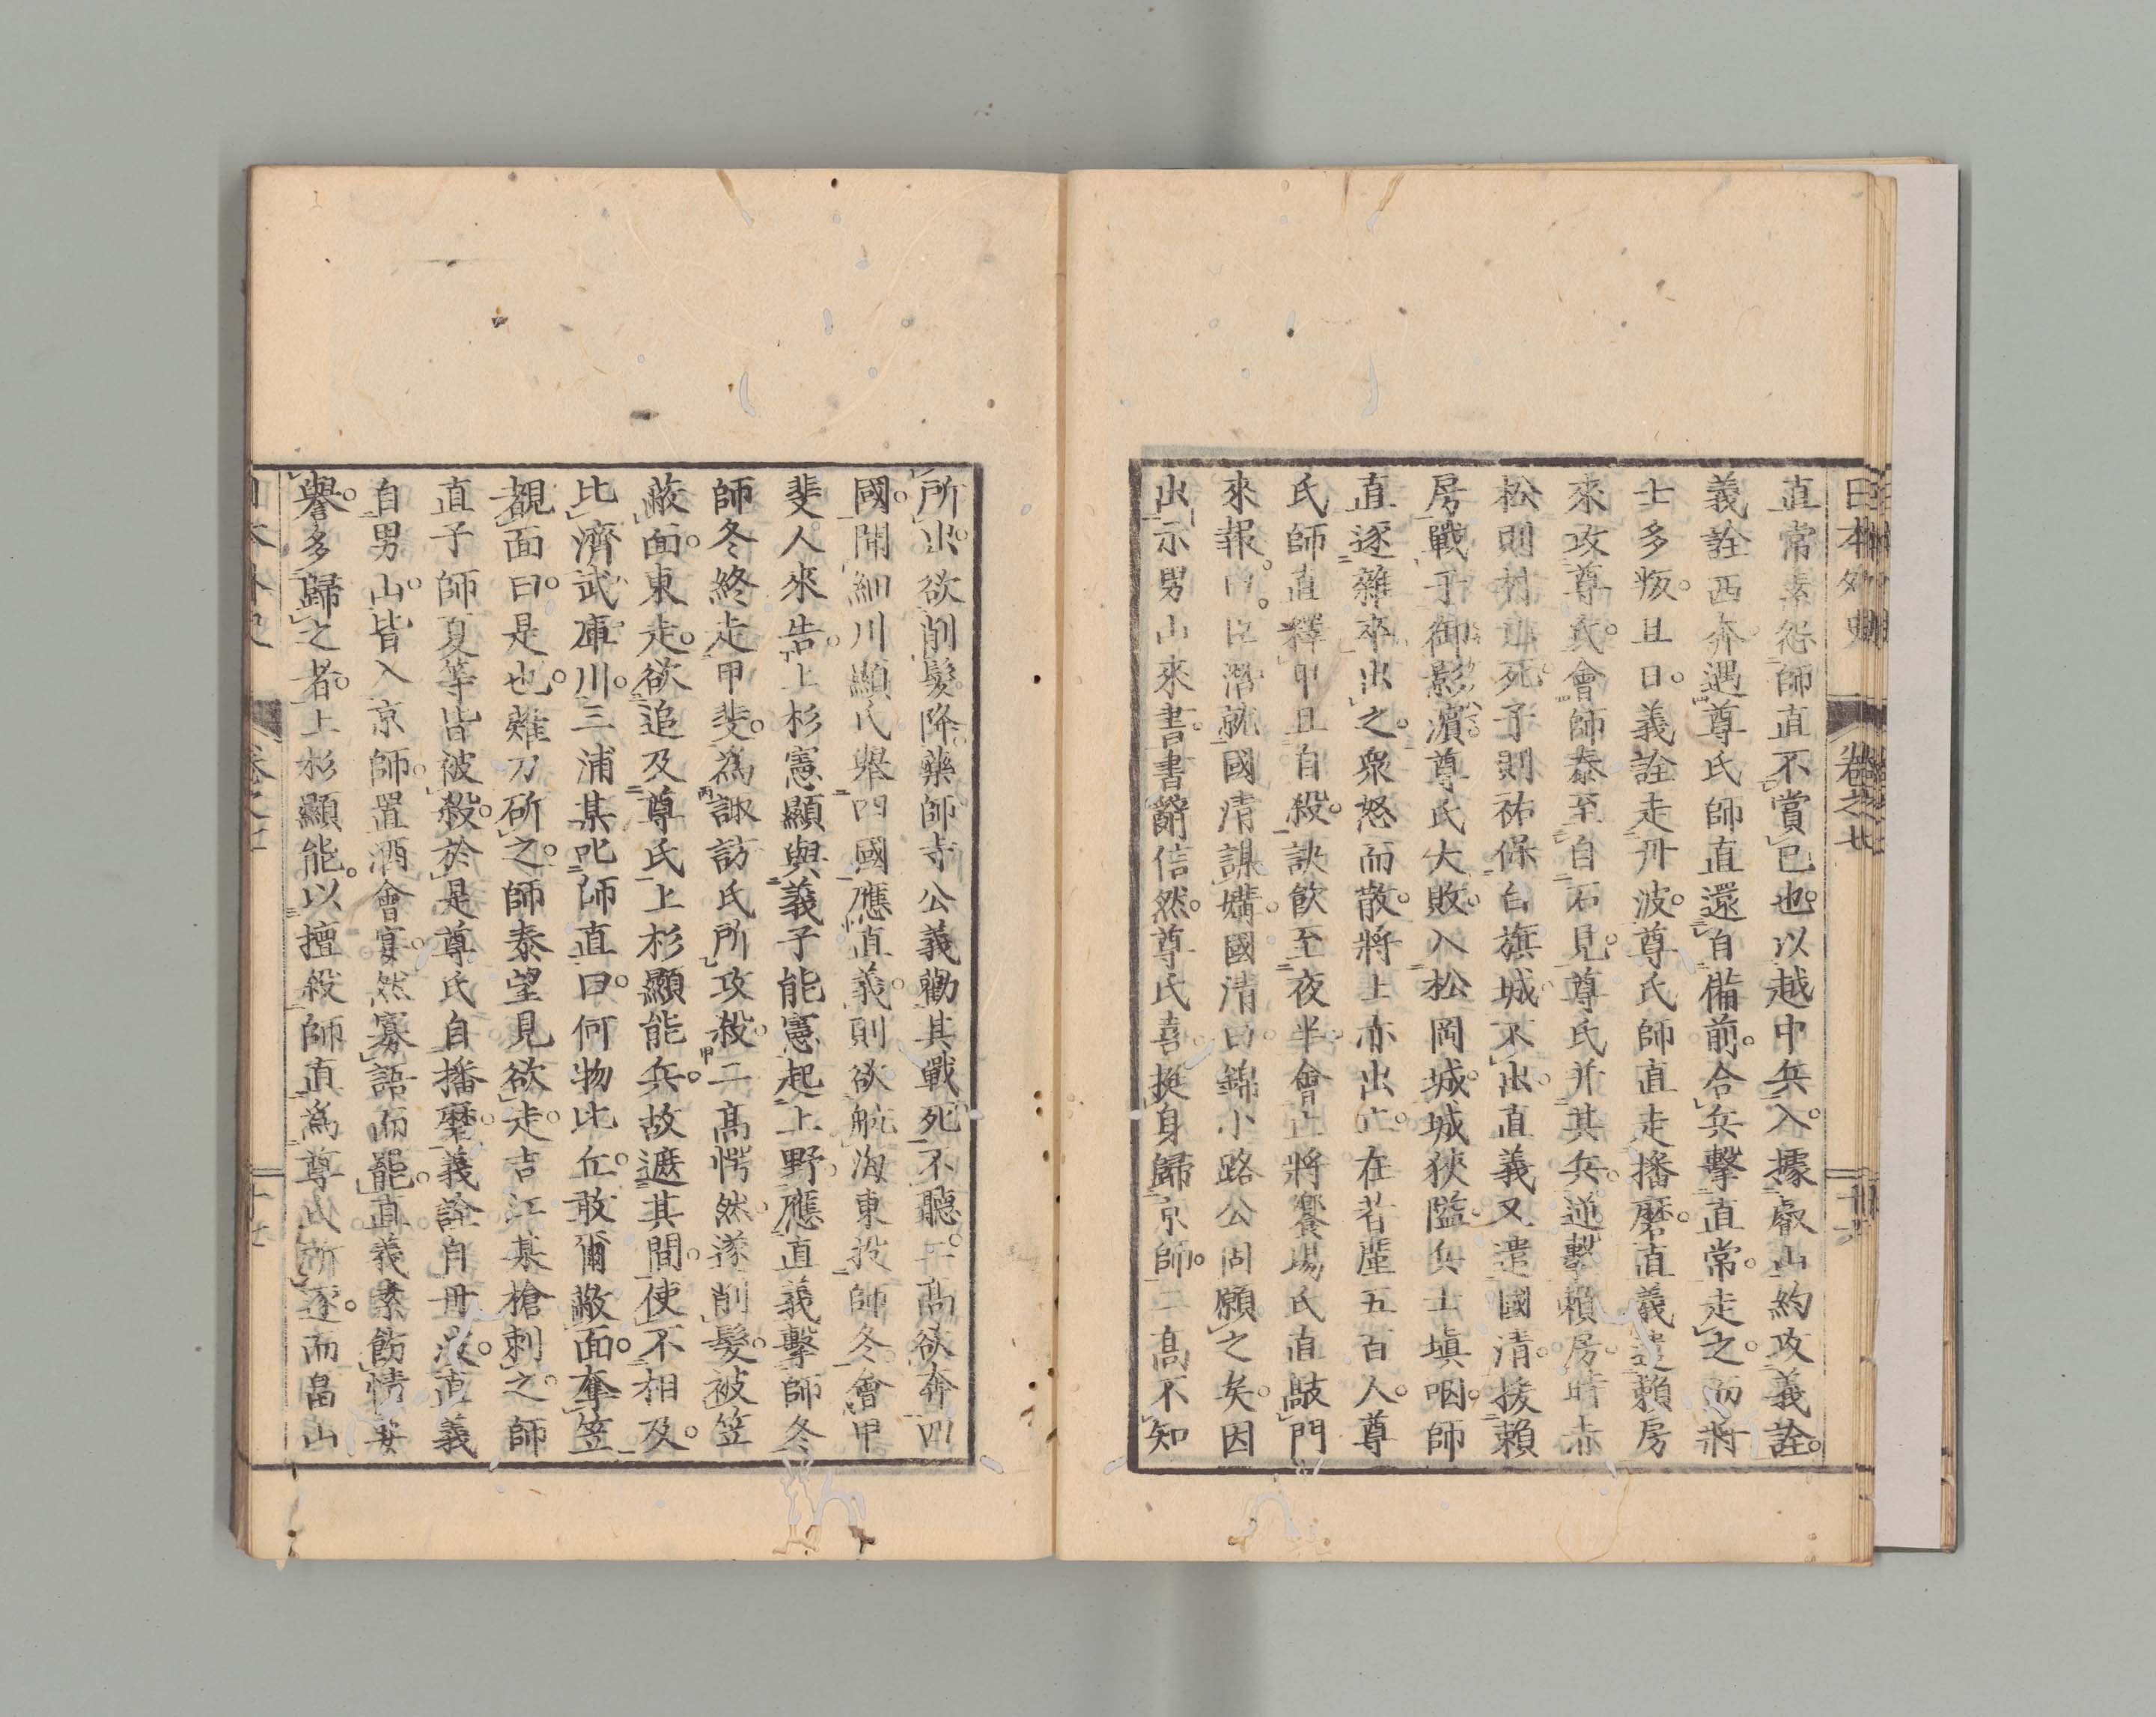 日本外史 卷之七
直常素怨師直不賞已也。以越中兵入。據叡山約攻義詮。
義詮西奔遇尊氏師直還自備前。合兵擊直常。走之。而將
士多叛。且日。義詮走丹波。尊氏師直走播磨。直義遣賴房
來攻尊氏。會師泰至自石見。尊氏并其兵。逆擊賴房。時赤
松則村迎死。子則祐保白旗城。不出。直義又遣國清。援賴
房。戰于御影濱。尊氏大敗。入松岡城。城狹隘。兵士填咽。師
直逐雜卒出之。衆怒而散。將士亦出亡。在者廑五百人。尊
氏師直釋甲且自殺。訣飲至夜半。會亡將饗場氏直敲門
來報曰。臣潛就國清謀媾。國清曰錦小路公固願之矣。因
出示男山來書。書辭信然。尊氏喜挺身歸京師。二高不知
所出。欲削髮降。藥師寺公義勸其戰死。不聽。二高欲奔四
國。聞細川顯氏舉四國應直義。則欲航海東投師冬。會甲
斐人來告。上杉憲顯與義子能憲起上野。應直義擊師冬
師冬終走甲斐。爲諏訪氏所攻殺。二高愕然。遂削髮。被笠
蔽面。東走。欲追及尊氏。上杉顯能兵。故遮其間。使不相及。
比濟武庫川。三浦某叱師直曰。何物比丘。敢爾蔽面。奪笠
覩面曰。是也。薙刀斫之。師泰望見欲走。吉江某槍刺之。師
直子師夏等皆被殺。於是尊氏自播磨。義詮自丹波。直義
自男山。皆入京師。置酒會宴。然寡語而罷。直義素飭情要
譽。多歸之者。上杉顯能。以擅殺師直。爲尊氏所逐。而畠山